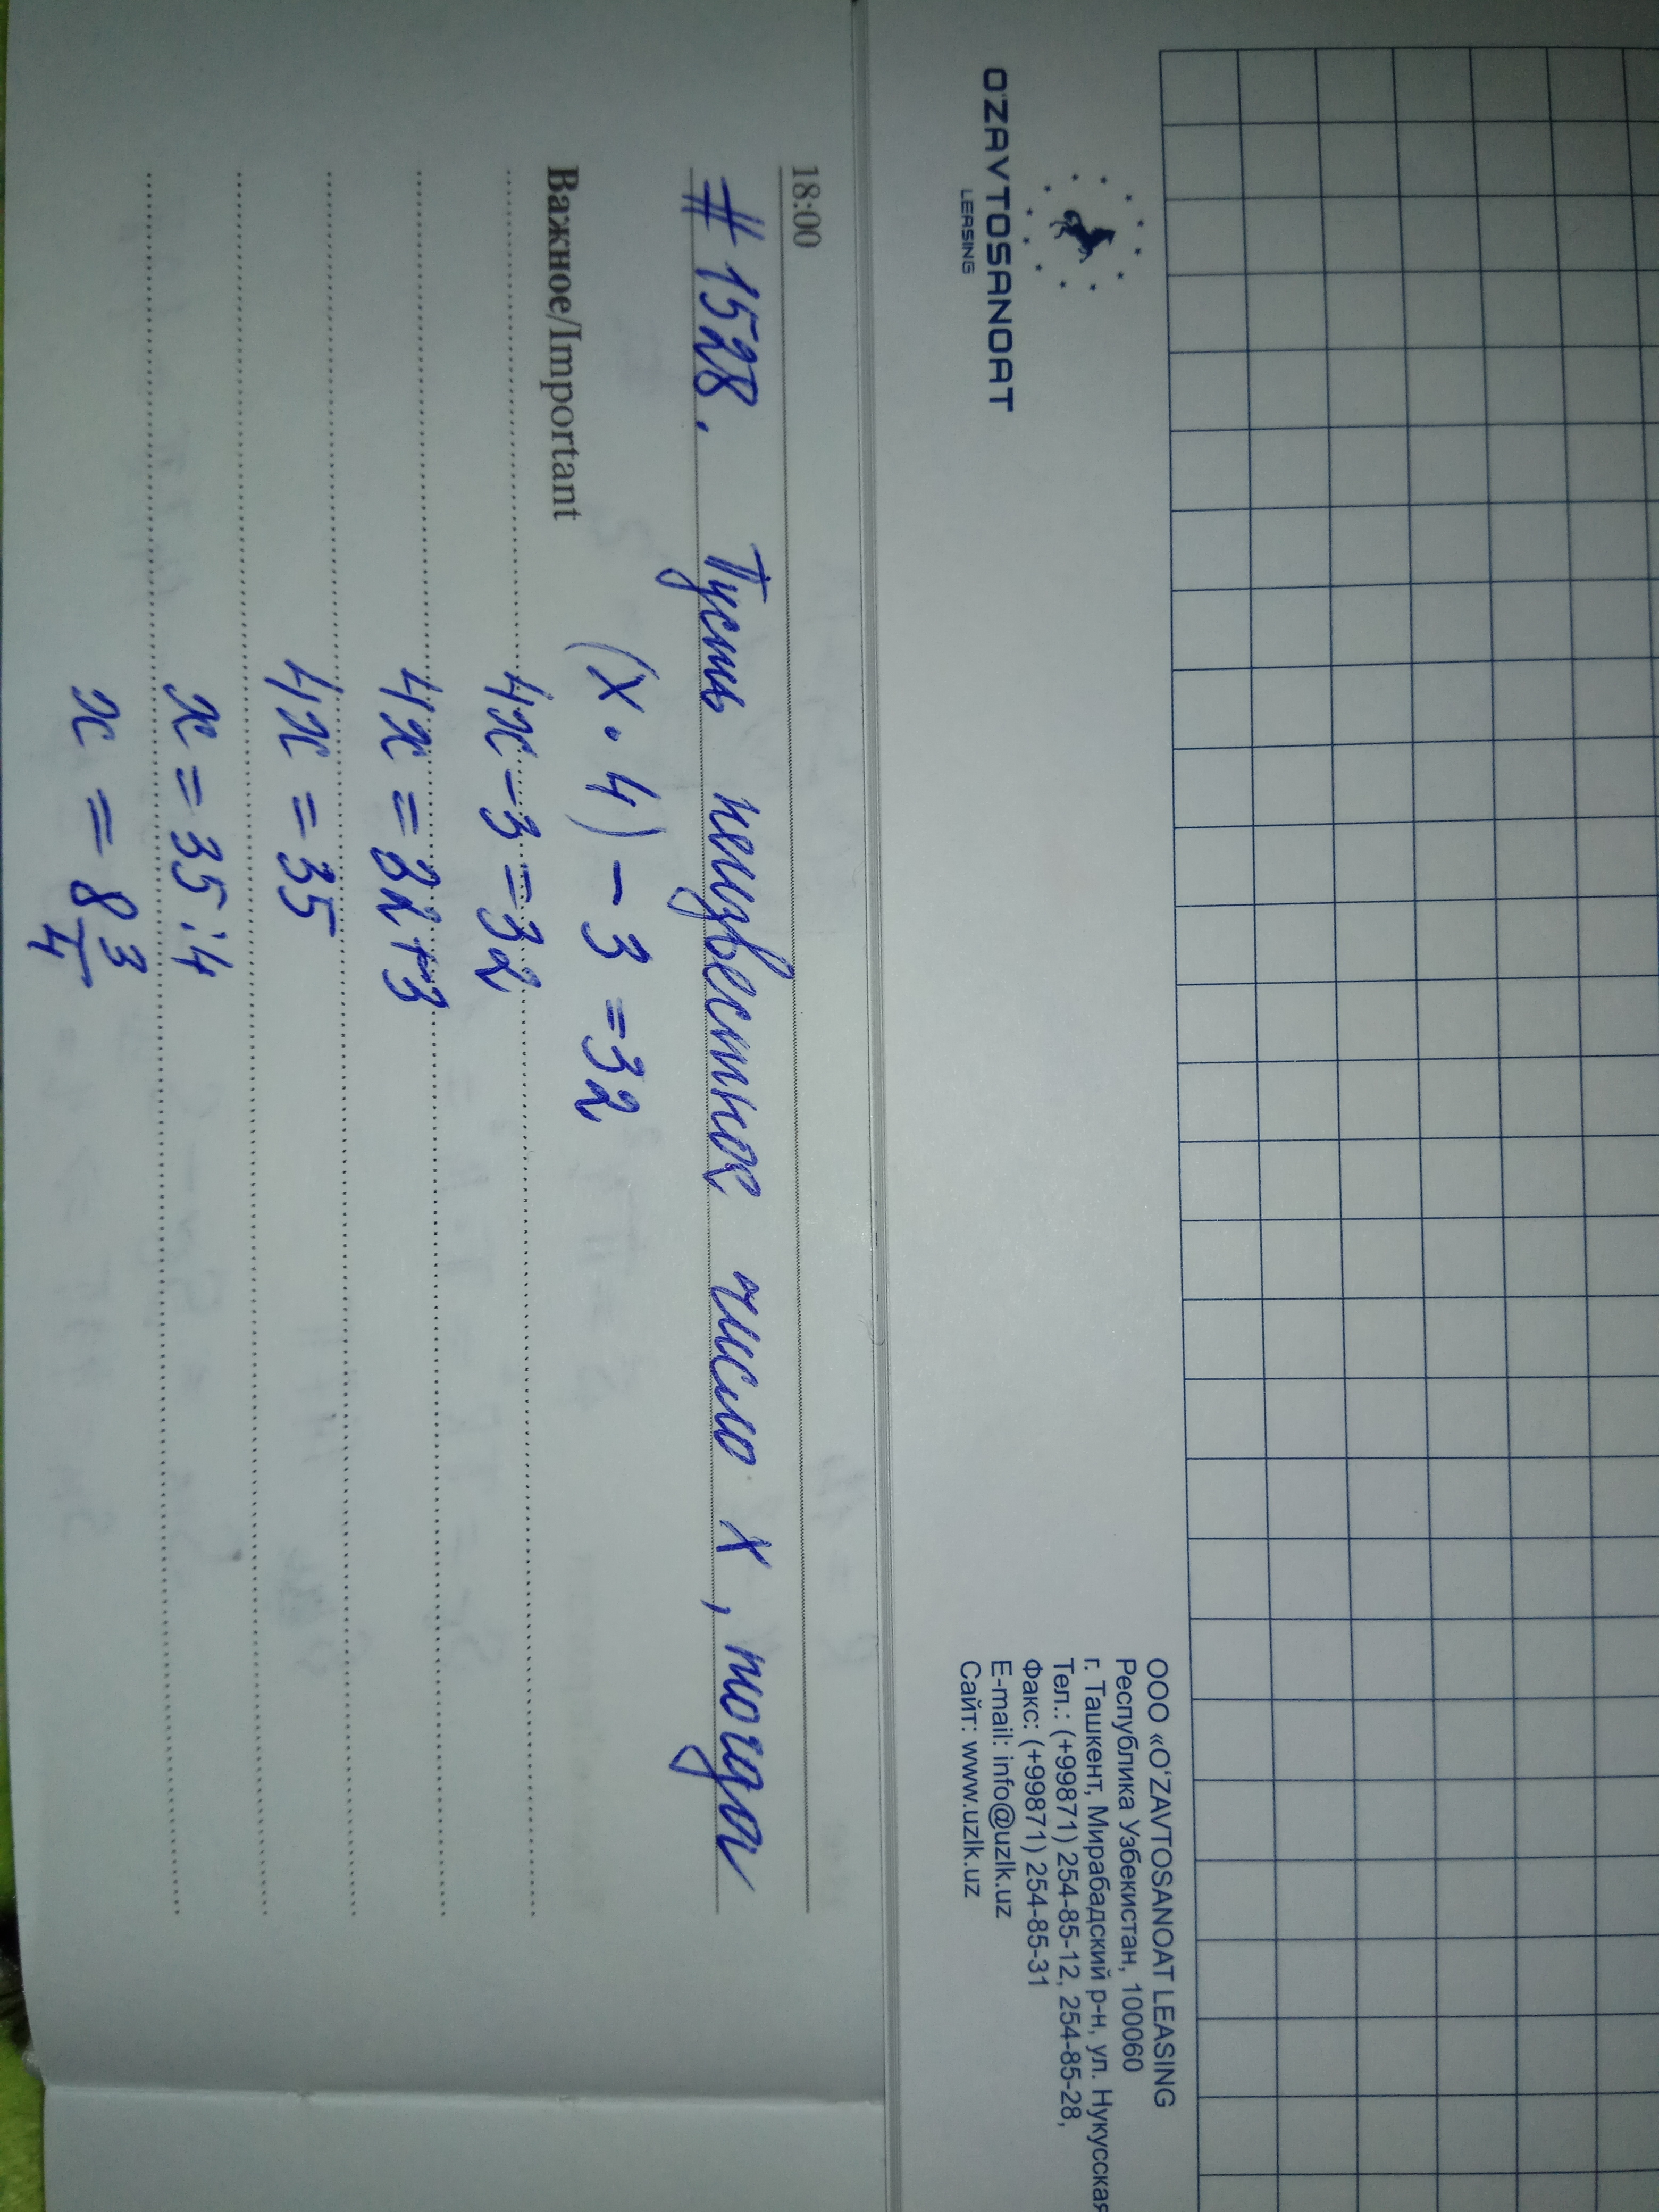 O'ZAVTOSANOAT
LEASING
ООО «O'ZAVTOSANOAT LEASING
Республика Узбекистан, 100060
г. Ташкент, Мирабадский р-н, ул. Нукусская
Тел.: (+99871) 254-85-12, 254-85-28,
Факс: (+99871) 254-85-31
E-mail: info@uzlk.uz
Сайт: www.uzlk.uz
18:00
# 1528. Пусть неизвестное число x, тогда
(x · 4) - 3 = 32
Важное/Important
4x - 3 = 32
4x = 32 + 3
4x = 35
x = 35 : 4
x = 8 3/4